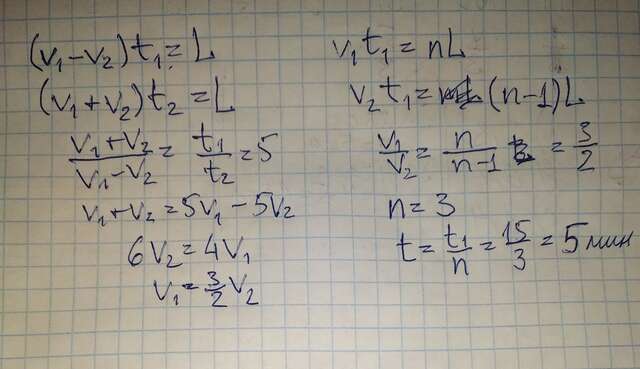 (v₁-v₂)t₁=L
(v₁+v₂)t₂=L
(v₁+v₂)/(v₁-v₂)=t₁/t₂=5
v₁+v₂=5v₁-5v₂
6v₂=4v₁
v₁=3/2v₂
v₁t₁=nL
v₂t₁=(n-1)L
v₁/v₂=n/(n-1)=3/2
n=3
t=t₁/n=15/3=5мин